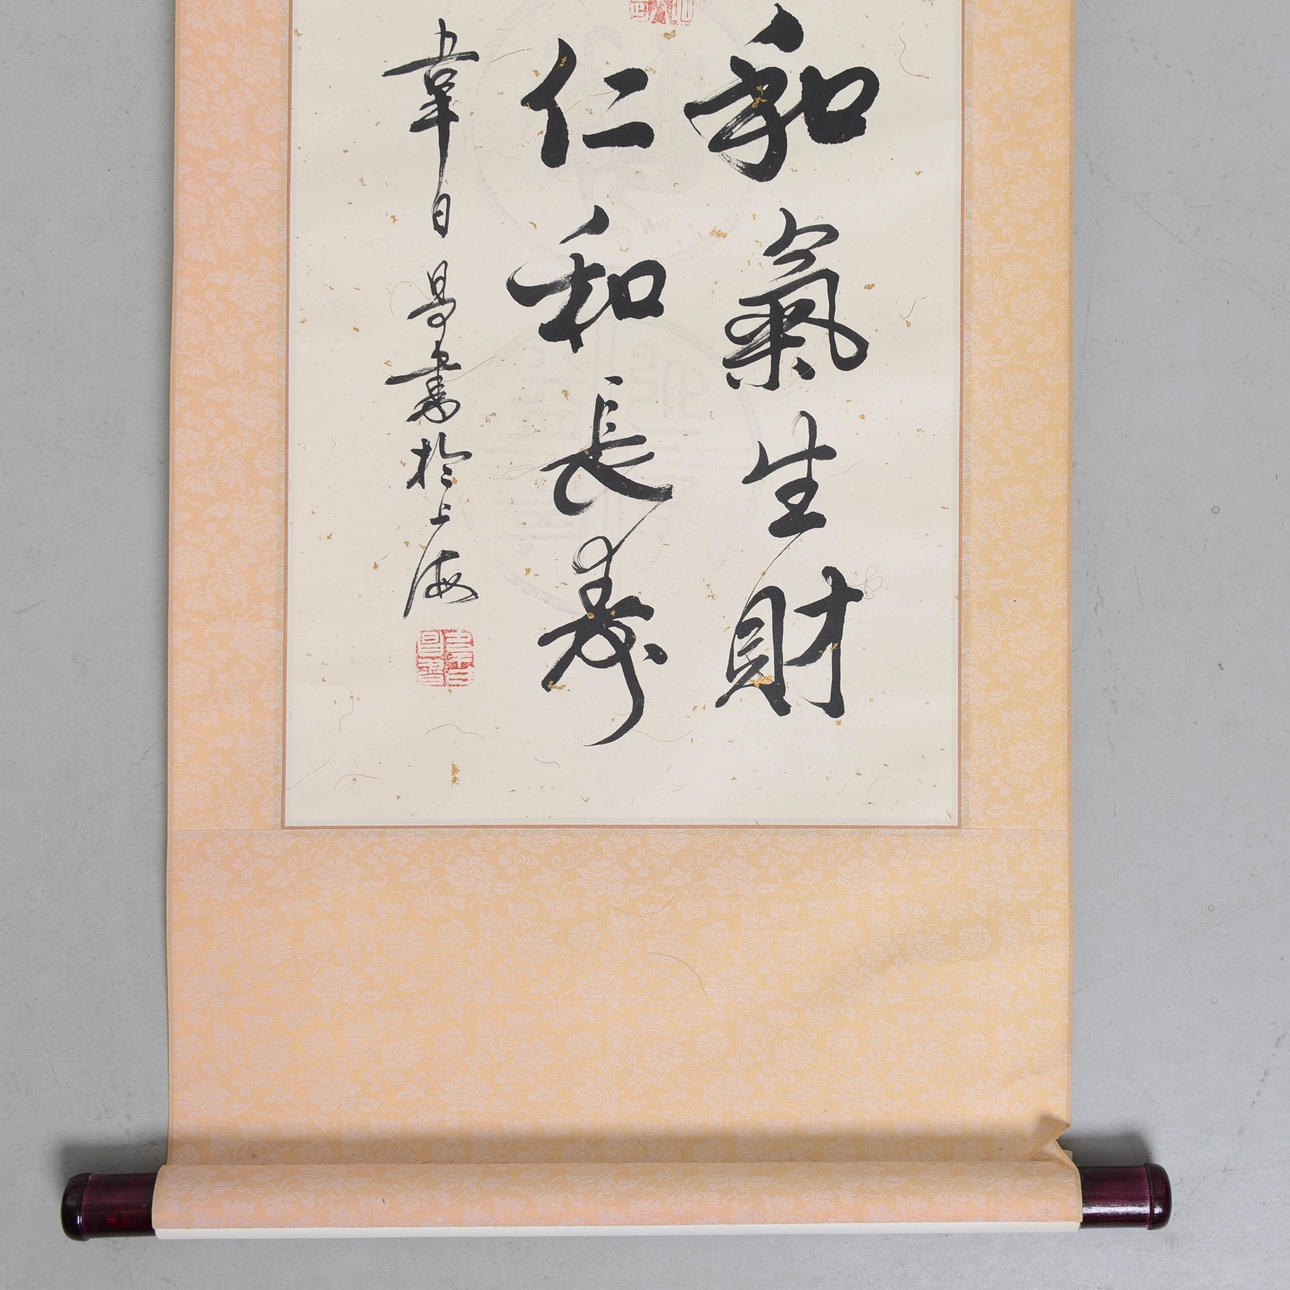 和氣生財
仁和長壽
韋日昌書於上海